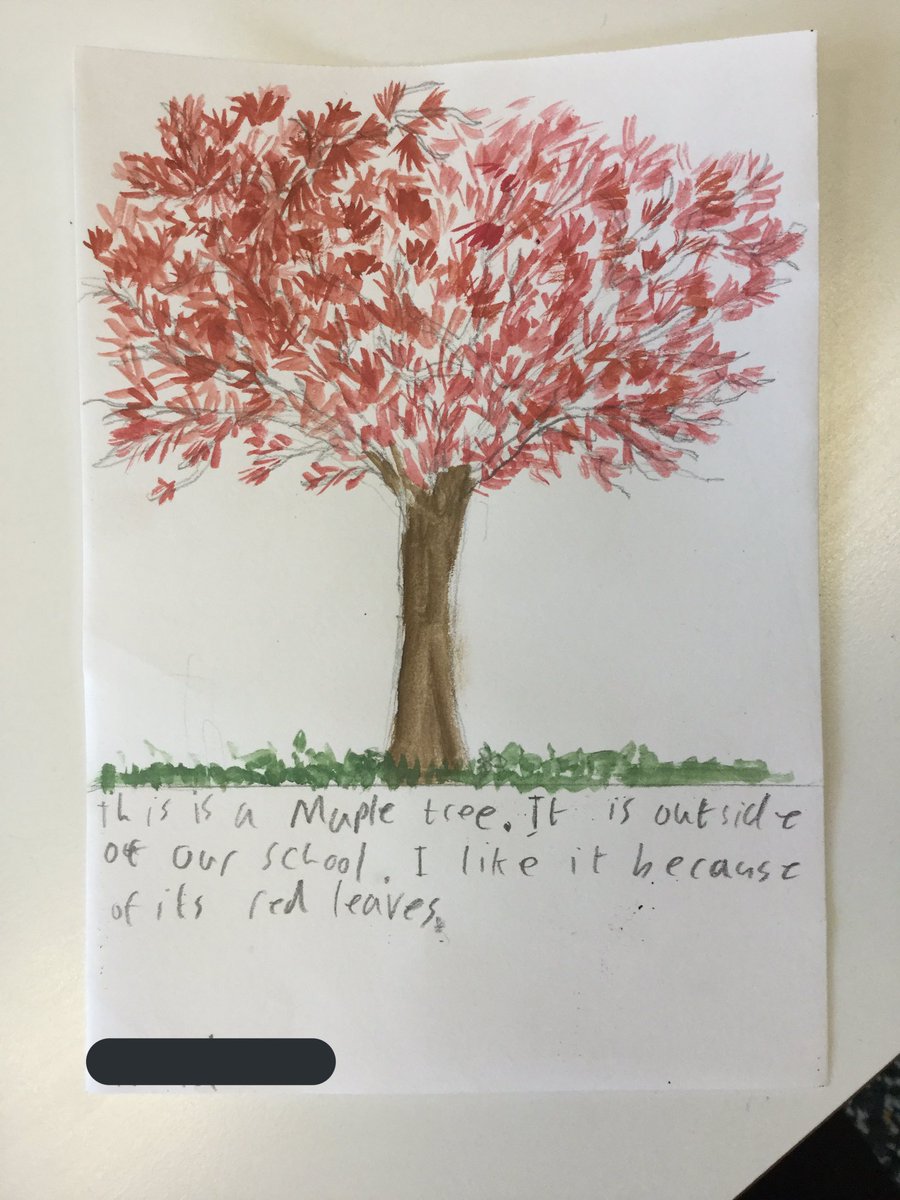 this is a Maple tree. It is outside
of our school. I like it because
of its red leaves.